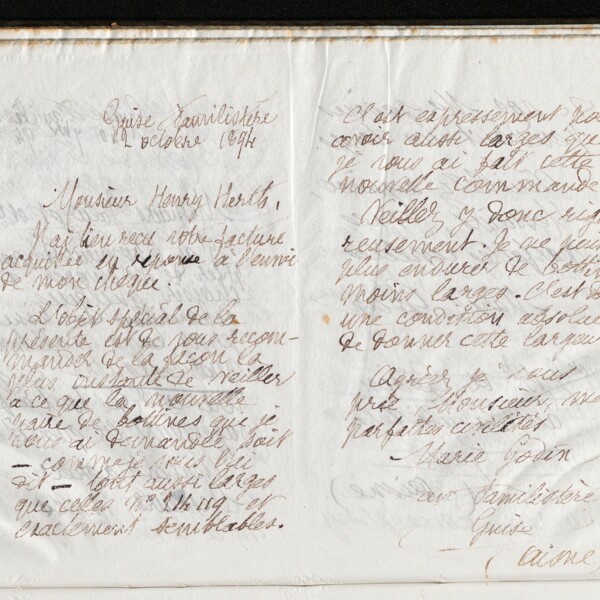 Guise Familistère
12 octobre 1894
Monsieur Henry Herth,
J'ai bien reçu votre facture
acquittée en réponse à l'envoi
de mon chèque.
L'objet spécial de la
présente est de vous recom-
mander de la façon la
plus instante de veiller
à ce que la nouvelle
paire de bottines que je
vous ai demandée soit
— comme je vous l'ai
dit — tout aussi larges
que celles Nº 24119 et
exactement semblables.
C'est expressement pour
avoir aussi larges que
je vous ai fait cette
nouvelle commande
Veillez y donc rig
reusement. Je ne puis
plus endurer de botti
moins larges. C'est do
une condition absolue
de donner cette largeur
Agréez je vous
prie, Monsieur, me
parfaites civilités
Marie Godin
au Familistère
Guise
(Aisne)